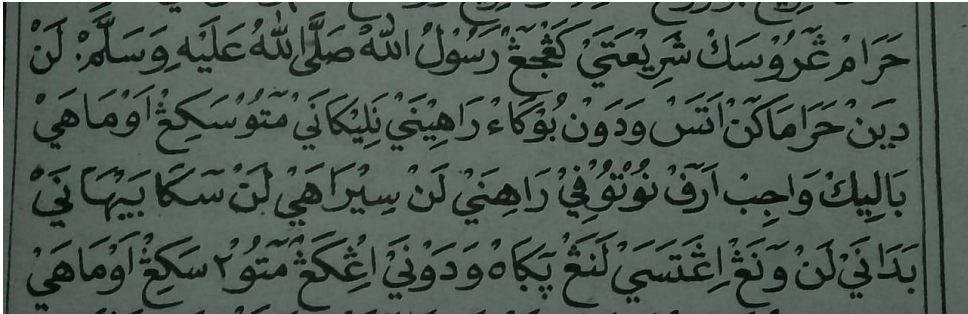 حَرَامْ ڠَرُوْسَكْ شَرِيْعَتَيْ كَڠْجَڠْ رَسُوْلُ اللهْ صَلَّى اللهُ عَلَيْهِ وَسَلَّمْ. لَنْ
دَيْنْ حَرَامَاكَنْ اَتَسْ وَدَوْنْ بُوْكَاء رَاهِيْنَيْ نَلِيْكَانَيْ مَتُوْ سَكِڠْ اَوْمَاهَيْ
بَالِيْكْ وَاجِبْ اَرَفْ نُوْتُوْفِيْ رَاهِنَيْ لَنْ سِيْرَاهَيْ لَنْ سَكَابَيْهَانَيْ
بَدَانَيْ لَنْ وَنَڠْ اِڠَتَسَيْ لَنَڠْ پَكَاهْ وَدَوْنَيْ اِڠْكَڠْ مَتُوْ٢ سَكِڠْ اَوْمَاهَيْ